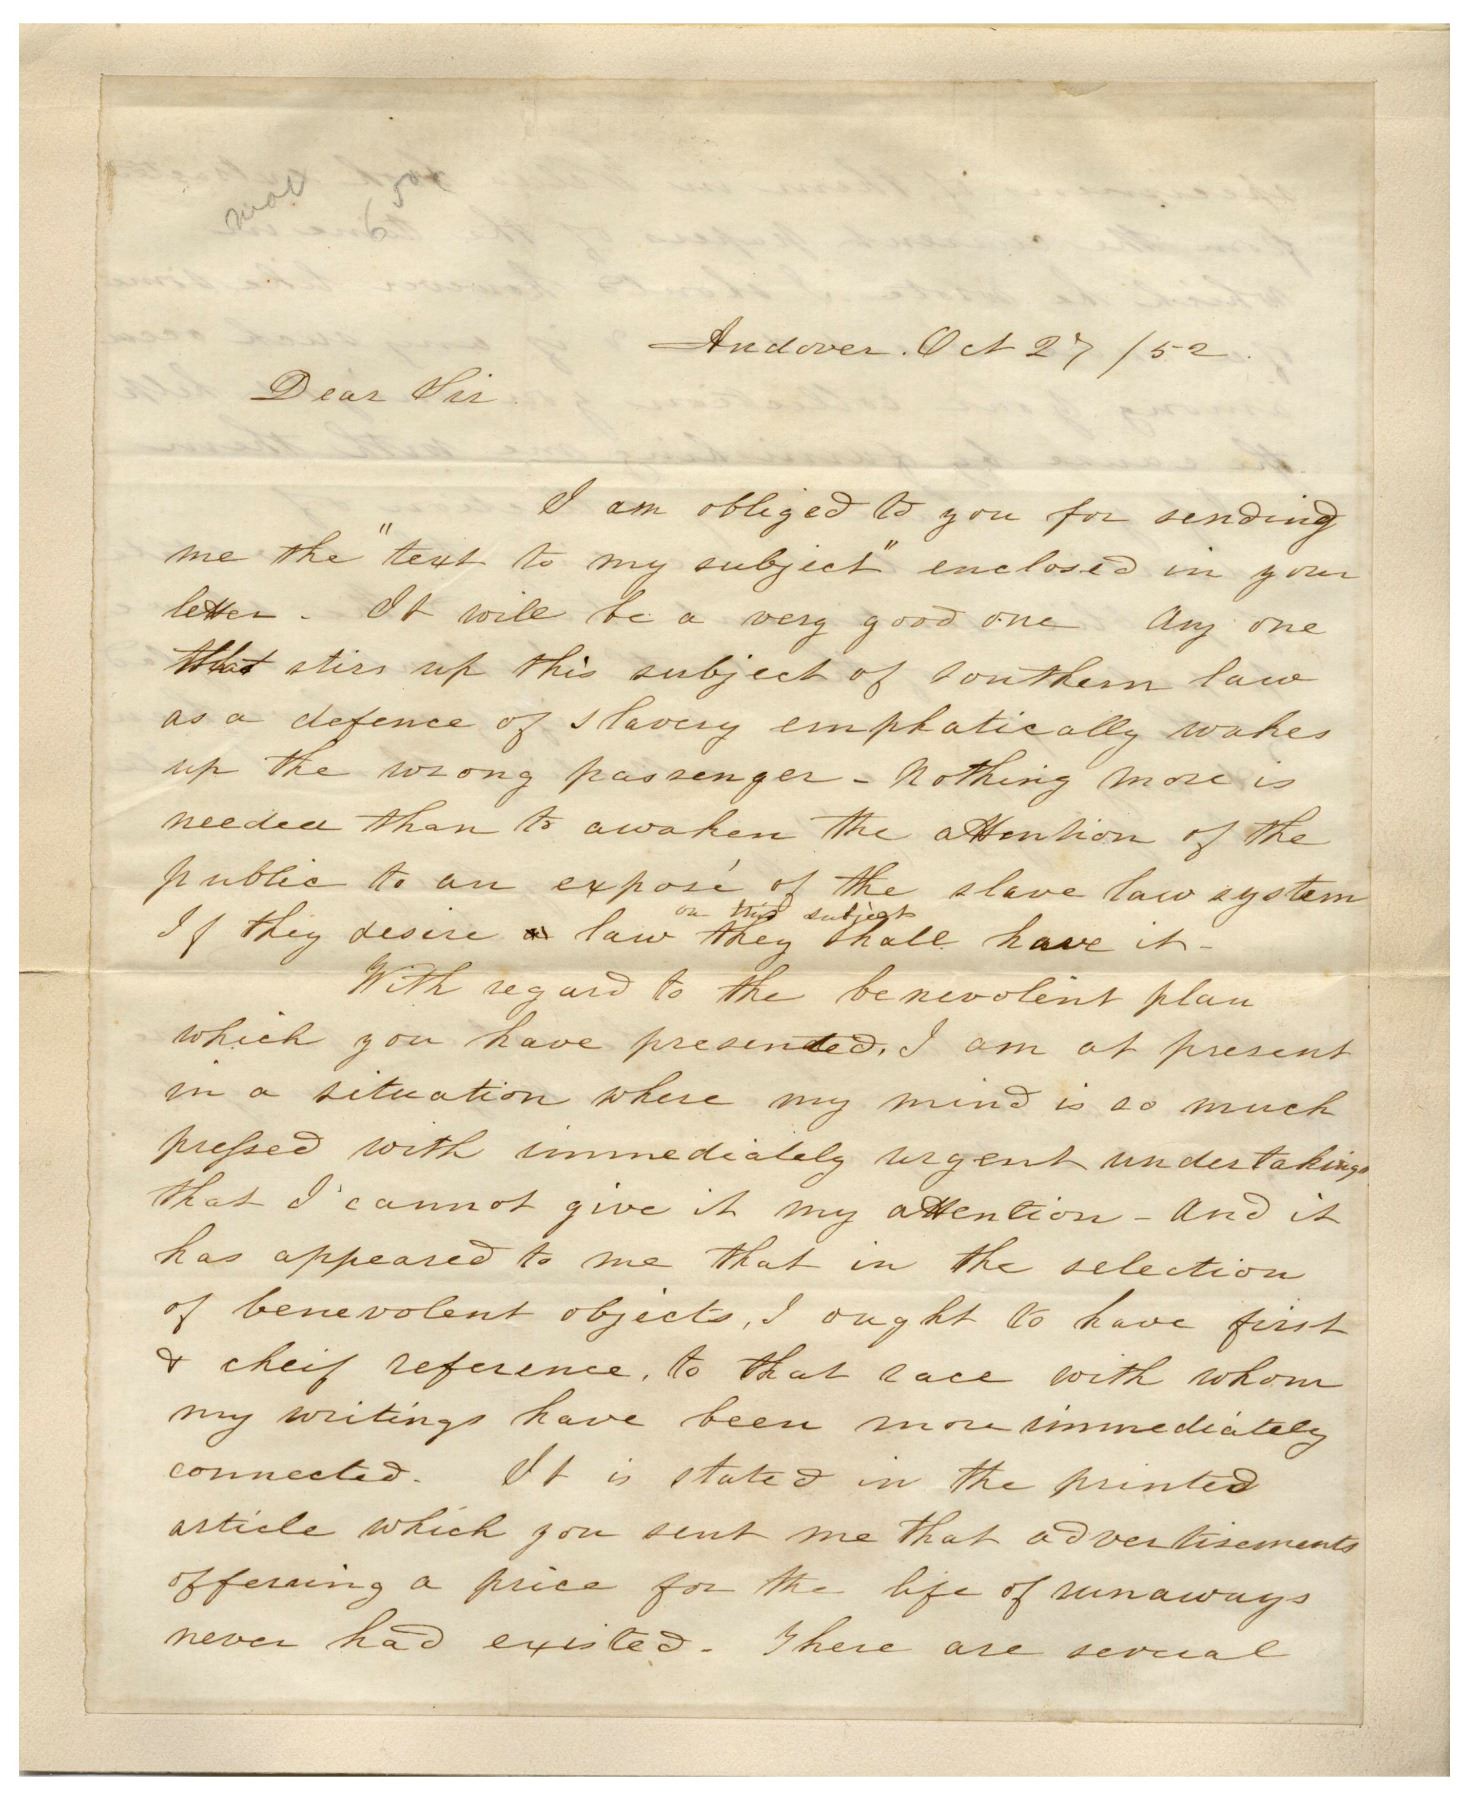 Andover. Oct 27 /52.
Dear Sir
I am obliged to you for sending
me the "text to my subject" enclosed in your
letter. It will be a very good one Any one
that stirs up this subject of southern law
as a defence of slavery emphatically wakes
up the wrong passenger - Nothing more is
needed than to awaken the attention of the
public to an exposé of the slave law system
on this subject
If they desire law they shall have it -
With regard to the benevolent plan
which you have presented, I am at present
in a situation where my mind is so much
pressed with immediately urgent undertakings
that I cannot give it my attention - And it
has appeared to me that in the selection
of benevolent objects, I ought to have first
& cheif reference, to that race with whom
my writings have been more immediately
connected. It is stated in the printed
article which you sent me that advertisements
offerring a price for the life of runaways
never had existed. There are several